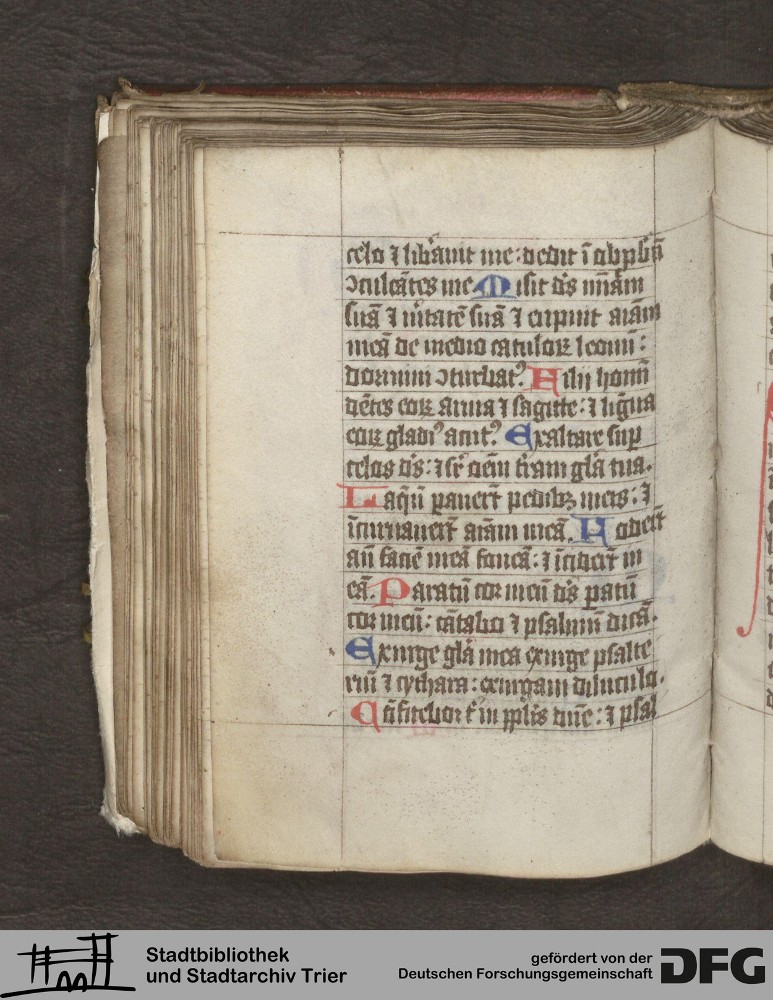 celo ⁊ libauit me: dedit ī obpbiū
ↄculcātes me Misit ds mīam
suā ⁊ uitatē suā ⁊ eripuit aīam
meā de medio catuloꝝ leonū:
dormiui ↄturbatꝰ. Filij homī
dētes eoꝝ arma ⁊ sagitte: ⁊ ligua
eoꝝ gladiꝰ acutꝰ Exaltare sup
celos ds: ⁊ sr̄ oēm tram glā tua.
Laqū pauert pedibꝫ meis: ⁊
īcuruauert aīam meā. Foderūt
aū faciē meā foueā: ⁊ īcidert in
eā. Paratū cor meū ds patū
cor meū: cātabo ⁊ psalmū dicā.
Exurge glā mea exurge psalte
riū ⁊ cythara: exurgam diluculo.
Cōfitebor t' in pplis dne: ⁊ psal
Stadtbibliothek
und Stadtarchiv Trier
gefördert von der
Deutschen Forschungsgemeinschaft
DFG